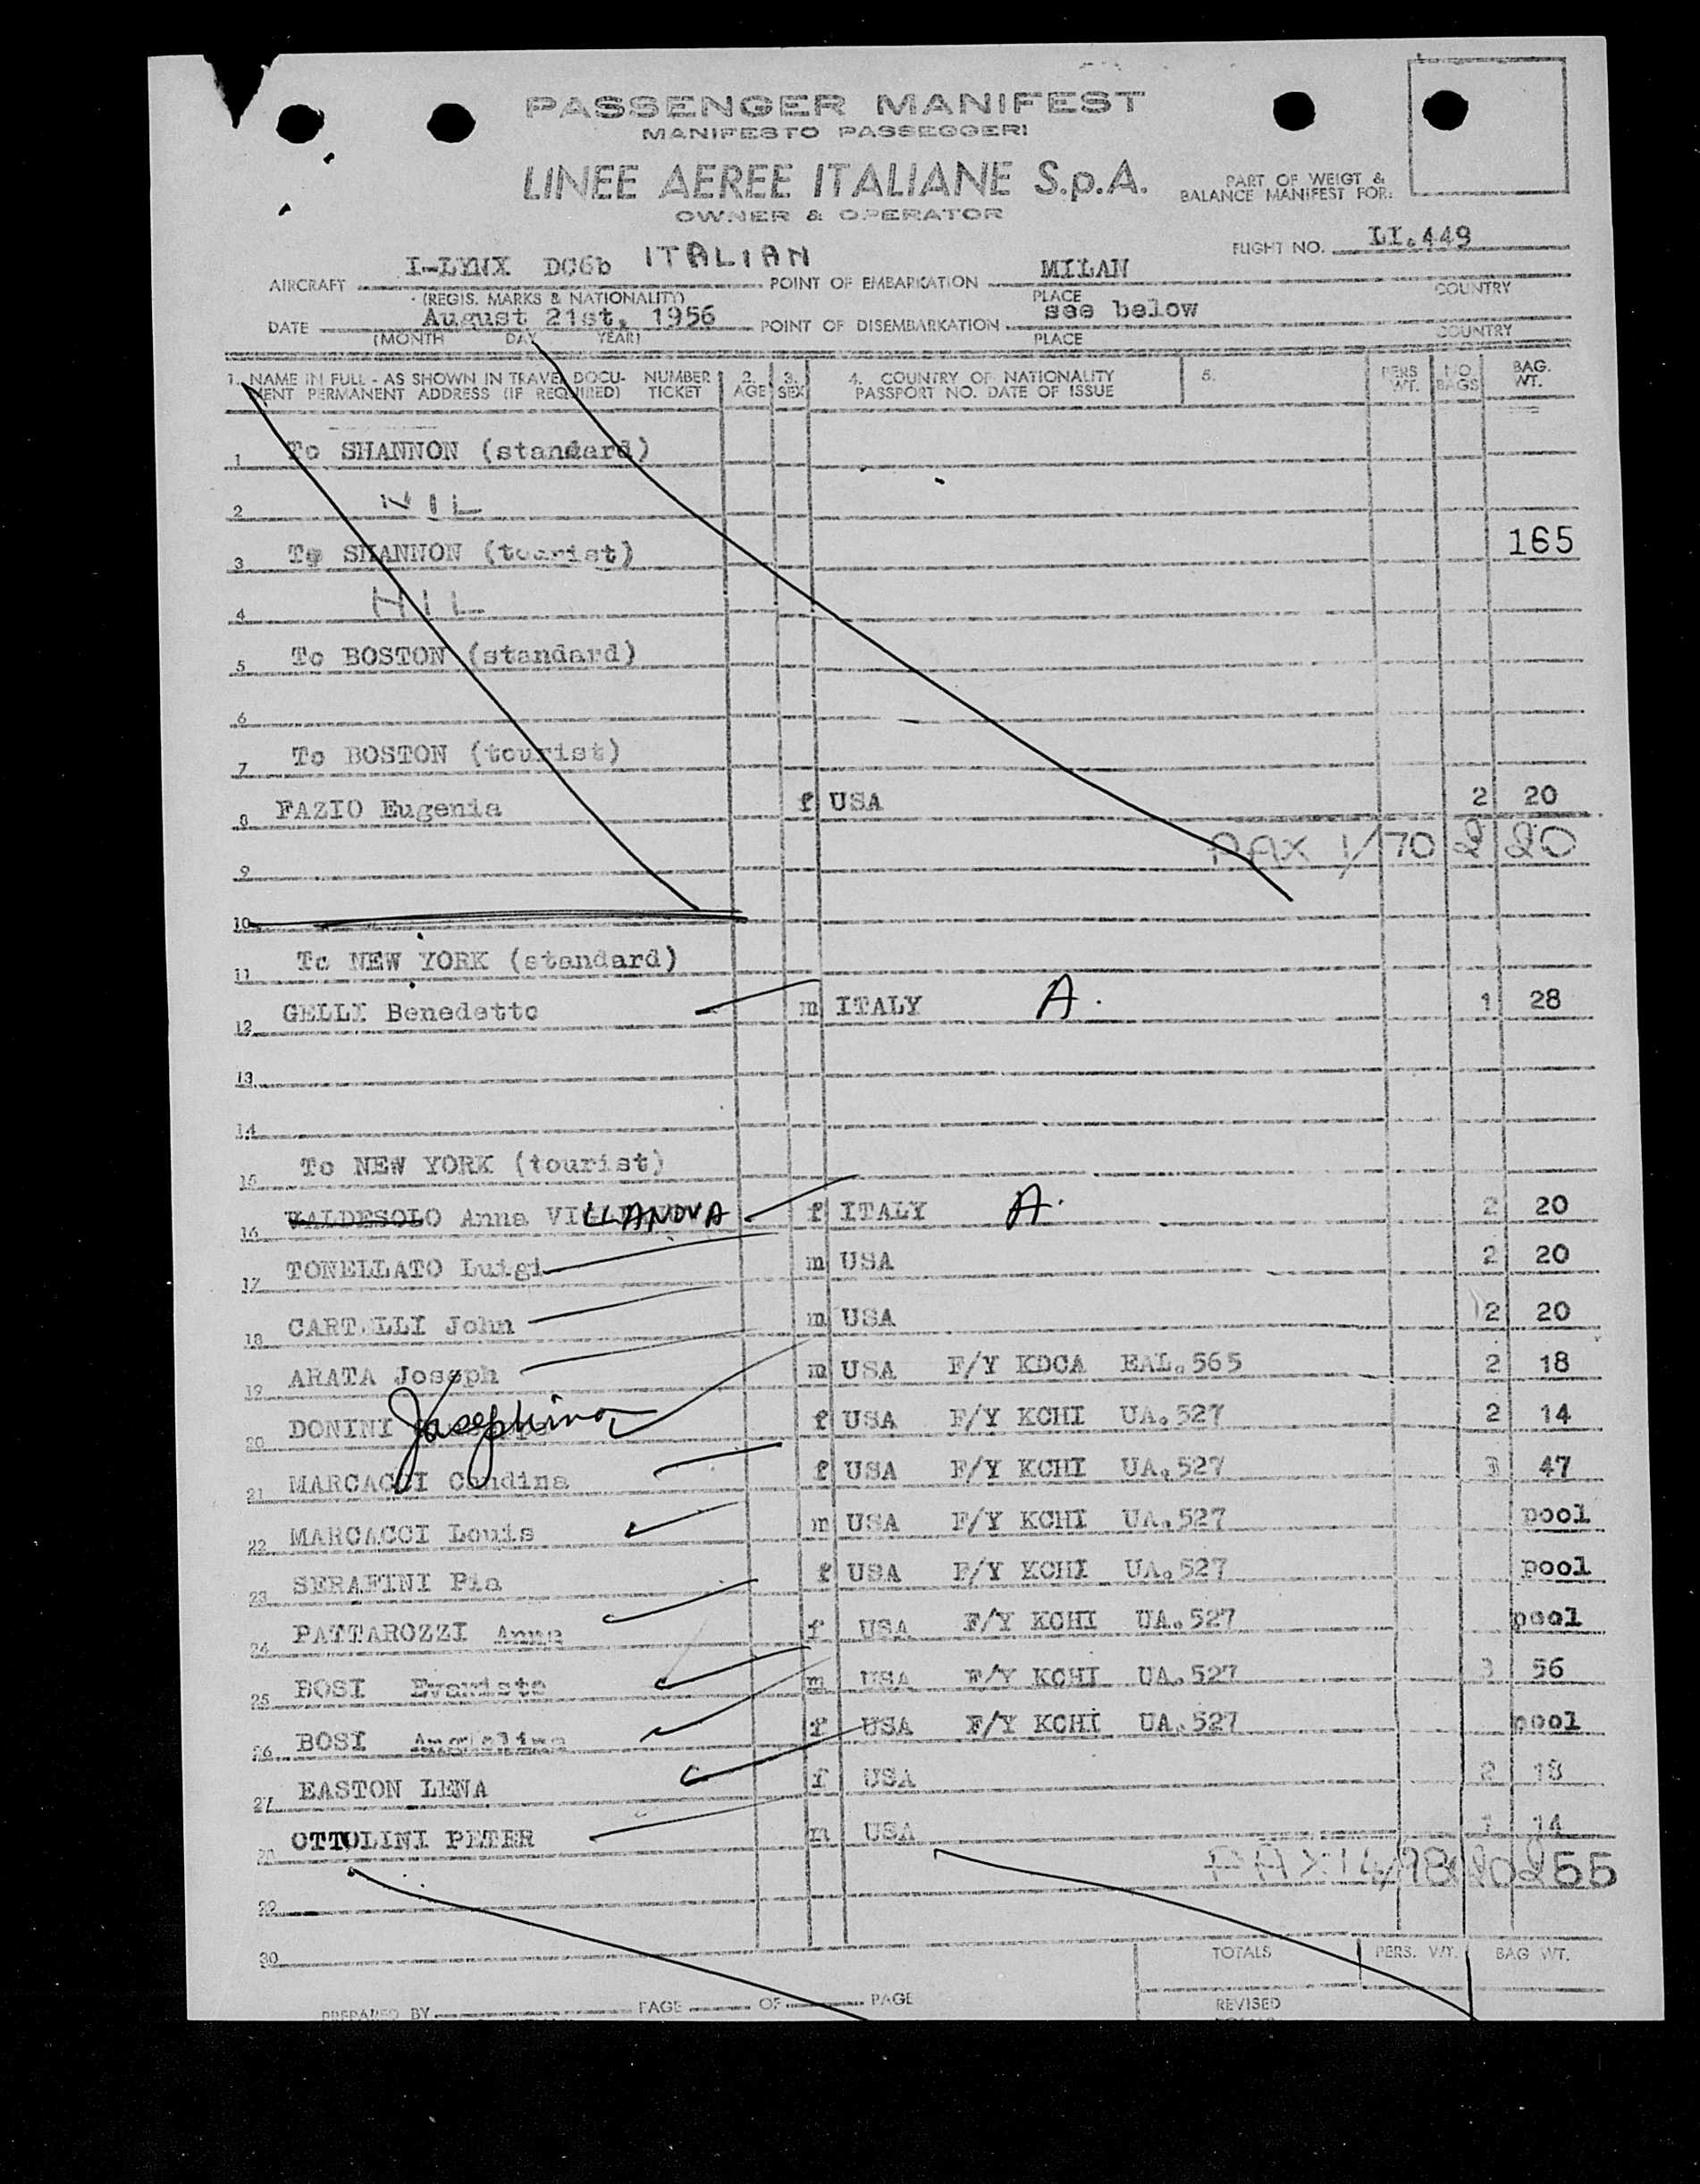 PASSENGER MANIFEST
MANIFESTO PASSEGGERI
LINEE AEREE ITALIANE S.p.A.
OWNER & OPERATOR
PART OF WEIGT &
BALANCE MANIFEST FOR:
FLIGHT NO. LI.449
AIRCRAFT I-LYNX DC6b ITALIAN POINT OF EMBARKATION MILAN
(REGIS. MARKS & NATIONALITY) PLACE COUNTRY
DATE August 21st, 1956 POINT OF DISEMBARKATION see below
(MONTH DAY YEAR) PLACE COUNTRY
1. NAME IN FULL - AS SHOWN IN TRAVEL DOCU- NUMBER 2. 3. 4. COUNTRY OF NATIONALITY 5. PERS NO. BAG.
MENT PERMANENT ADDRESS (IF REQUIRED) TICKET AGE SEX PASSPORT NO. DATE OF ISSUE WT. BAGS WT.
1 To SHANNON (standard)
2 NIL
3 To SHANNON (tourist) 165
4 NIL
5 To BOSTON (standard)
6
7 To BOSTON (tourist)
8 FAZIO Eugenia f USA 2 20
9 PAX 1/70 2 20
10
11 To NEW YORK (standard)
12 GELLI Benedetto m ITALY A. 1 28
13
14
15 To NEW YORK (tourist)
16 VALDESOLO Anna VILLANOVA f ITALY A. 2 20
17 TONELLATO Luigi m USA 2 20
18 John m USA 2 20
19 ARATA Joseph m USA F/Y KDCA EAL.565 2 18
20 DONINI Josephina f USA F/Y KCHI UA.527 2 14
21 MARCACCI Candina f USA F/Y KCHI UA.527 3 47
22 MARCACCI Louis m USA F/Y KCHI UA.527 pool
23 SERAFINI Pia f USA F/Y KCHI UA.527 pool
24 PATTAROZZI Anna f USA F/Y KCHI UA.527 pool
25 BOSI Evaristo m USA F/Y KCHI UA.527 3 56
26 BOSI f USA F/Y KCHI UA.527 pool
27 EASTON LENA f USA 2 18
28 OTTOLINI PETER m USA 1 14
PAX 14/ 20 255
29
30
TOTALS PERS. WT. BAG WT.
PREPARED BY PAGE OF PAGE REVISED